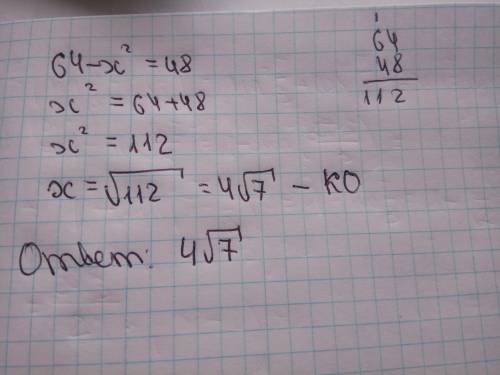 64-x² = 48
x² = 64+48
x² = 112
x = √112 = 4√7 - KO
Ответ: 4√7
1
64
48
112